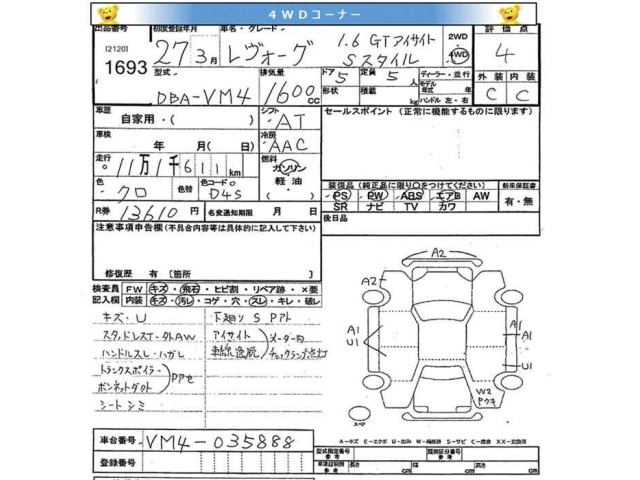 4WDコーナー
出品番号 初度登録年月 車名・グレード 2WD 4WD 評価点
I21201
1693
27年3月 レヴォーグ 1.6 GTアイサイト Sスタイル 4
型式 排気量 ドア 定員 ディーラー・並行 外装 内装
DBA-VM4 1600cc 5 5人
形状 積載 kg モデル年式 年式 ハンドル 左・右 C C
車歴 シフト セールスポイント(正常に機能するものに限ります)
自家用・( ) AT
車検 冷房
年 月( ) AAC
走行 燃料
11万1千611(km) ガソリン
軽油・
色 色替 色コードNo
クロ D4S
装備品(純正品に限り○をつけてください) 新車保証書
PS PW ABS エアB AW 有・無
SR ナビ TV カワ
R券 13610円 名変通知期限 月 日
後日品
注意事項申告欄(不具合内容等は具体的に記入して下さい)
修復歴 有〔箇所
検査員 FW キズ・飛石・ヒビ割・リペア跡・×要
記入欄 内装 キズ・汚し・コゲ・穴・スレ・キレ・破レ
キズ・U 下廻り S Pアト
スタッドレスT・社外AW アイサイト メーター内
ハンドルスレ・ハガレ 車線逸脱 チェックランプ点灯
トランクスポイラー
ボンネットダクト
シートシミ
A2
A2
A1
U1
A1
U1
W2
Pウキ
スペア
A-キズ E-エクボ U-凹み W-補修跡 S-サビ C-腐食 XX-交換済
車台番号 VM4-035888
登録番号
型式指定番号 参考 類別区分番号 参考
車庫証明用 参考 長さ cm 幅 cm 高さ cm